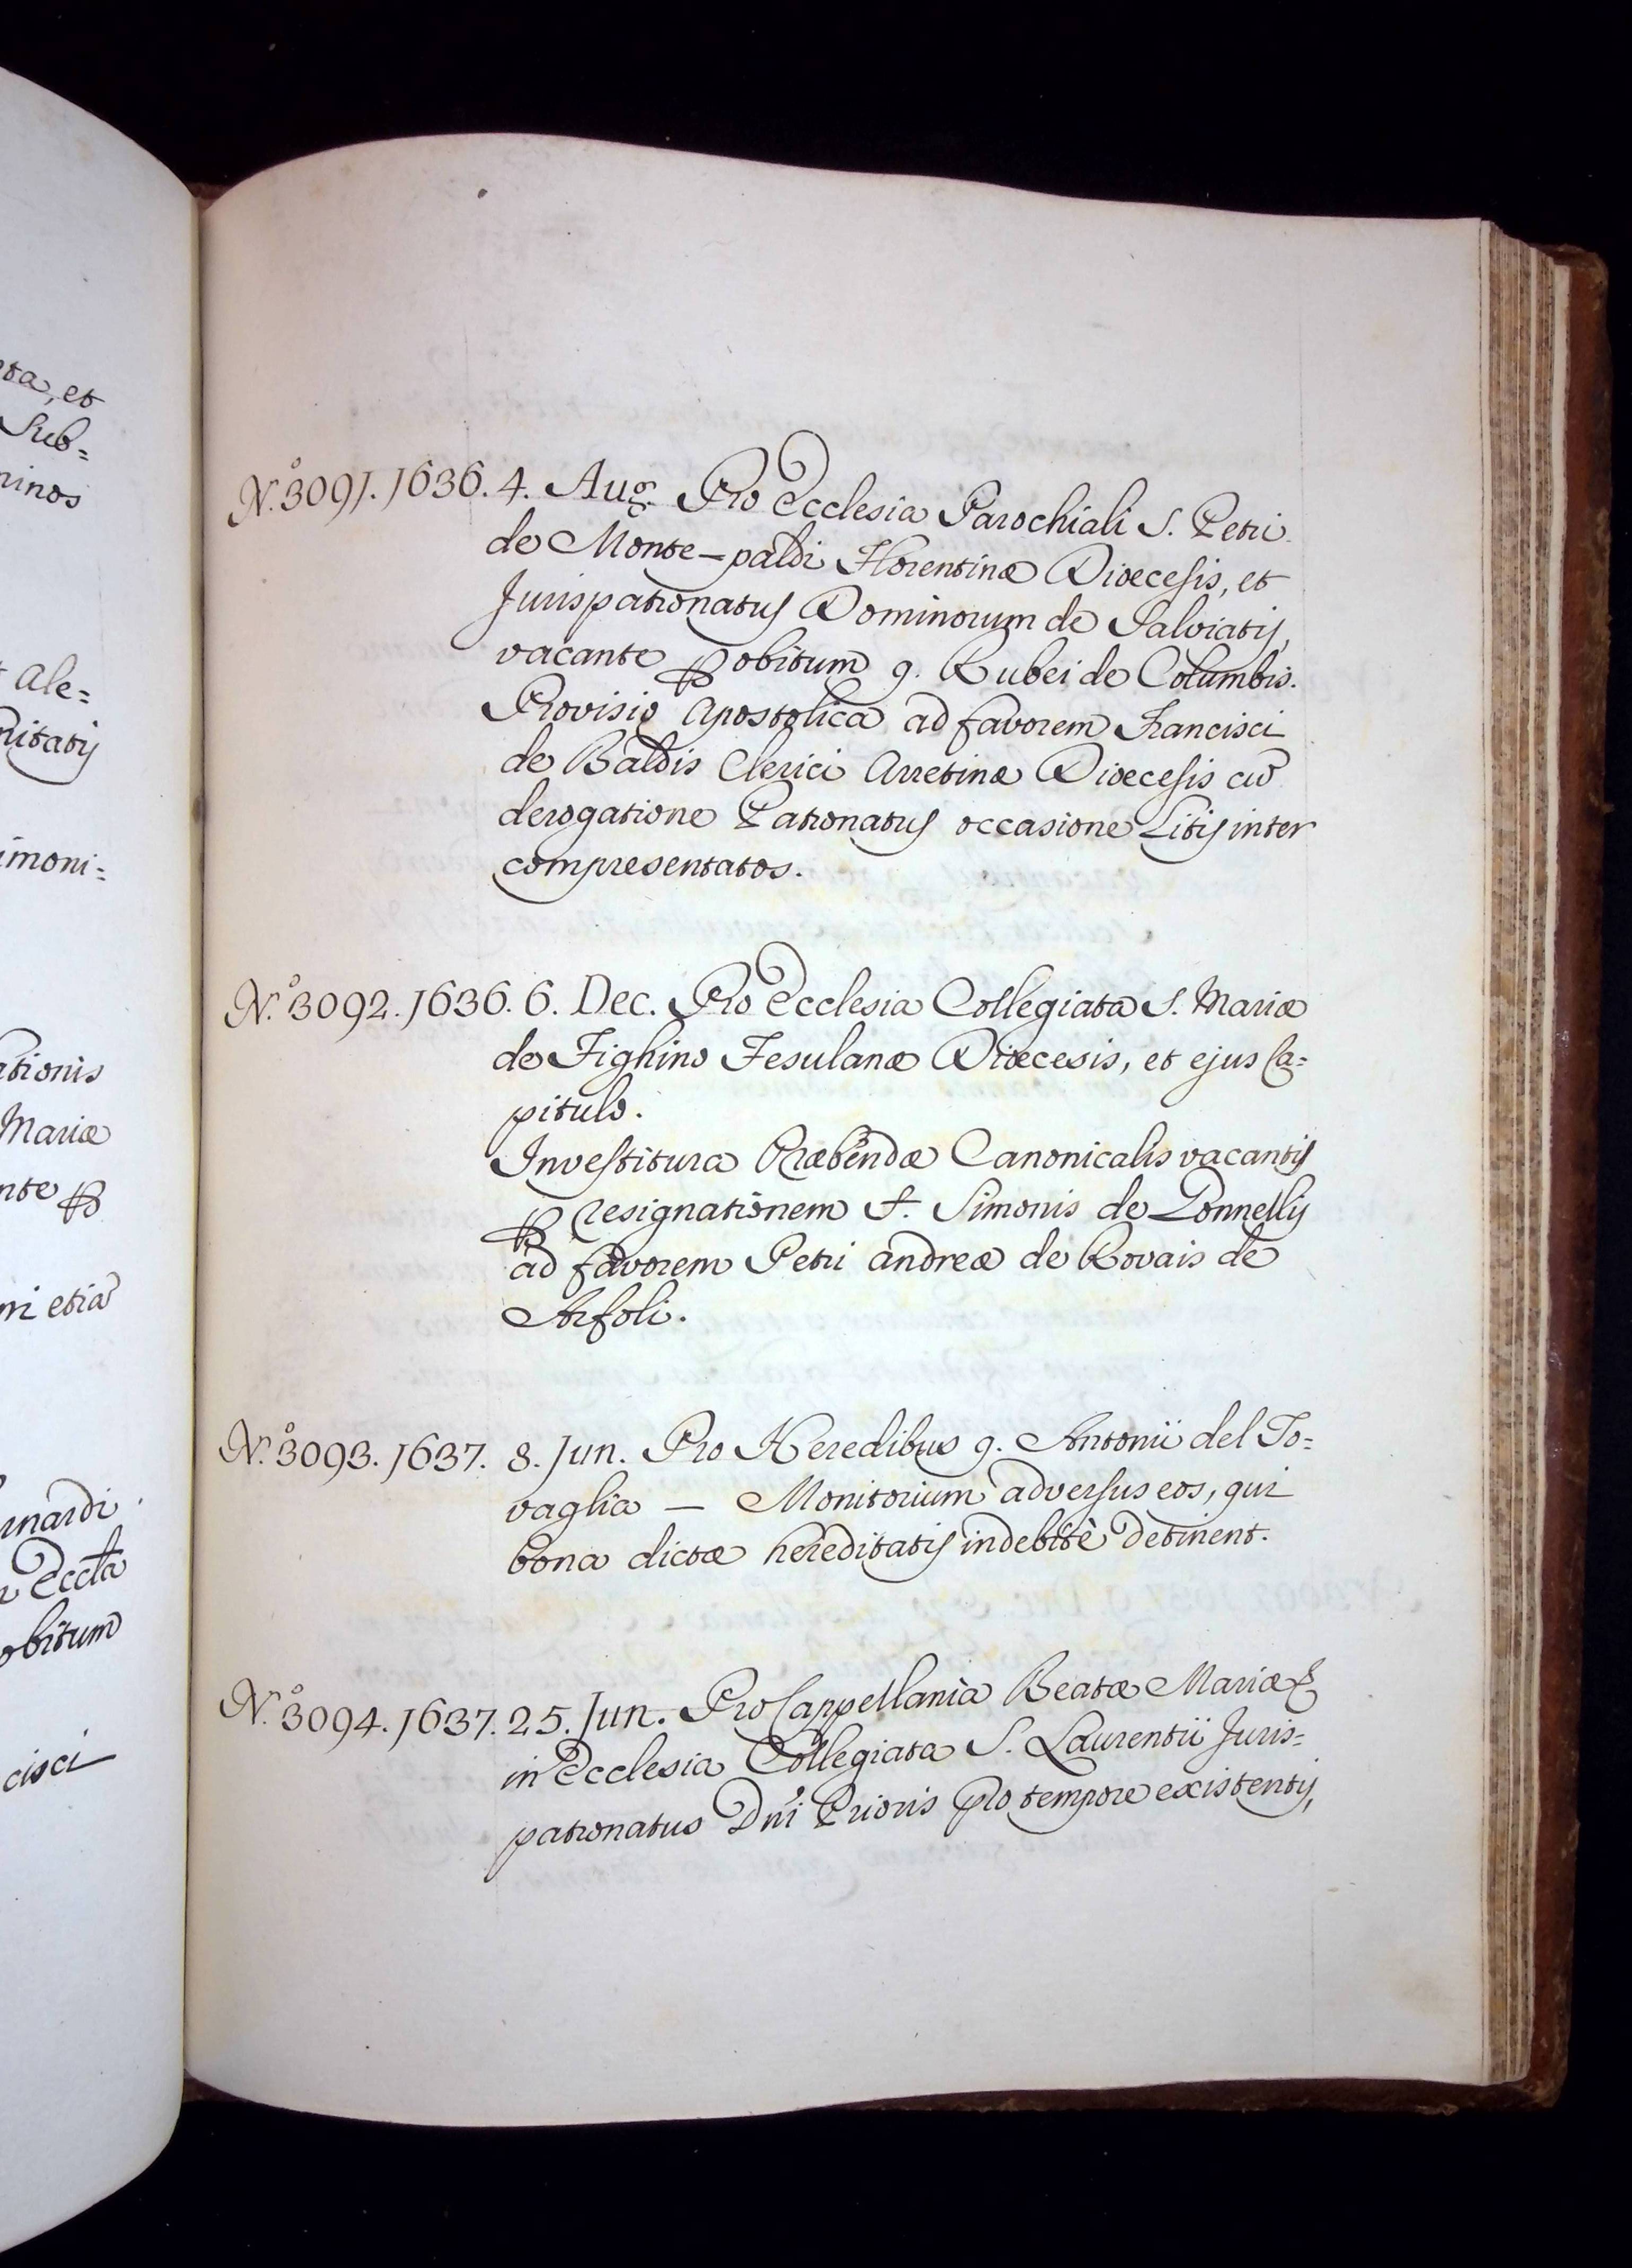 ta, et
Sub=
ninos
Ale=
nitatis
imoni=
ationis
Mariæ
nte ꝑ
ni etiã
rnardi
Eccl̃a
obitum
cisci
N.º 3091. 1636. 4. Aug. Pro Ecclesia Parochiali S. Petri
de Monte-paldi Florentinæ Diœcesis, et
Jurispatronatus Dominorum de Salviatis,
vacante ꝑ obitum q. Rubei de Columbis.
Provisio Apostolica ad favorem Francisci
de Baldis Clerici Arretinæ Diœcesis cũ
derogatione Patronatus occasione Litis inter
compresentatos.
N.º 3092. 1636. 6. Dec. Pro Ecclesia Collegiata S. Mariæ
de Fighino Fesulanæ Diœcesis, et ejus Ca=
pitulo.
Investitura Præbendæ Canonicalis vacantis
ꝑ resignationem f. Simonis de Donnellis
ad favorem Petri Andreæ de Rovais de
Arfoli.
N.º 3093. 1637. 8. Jun. Pro Heredibus q. Antonii del To=
vaglia — Monitorium adversus eos, qui
bona dictæ hereditatis indebitè detinent.
N.º 3094. 1637. 25. Jun. Pro Cappellania Beatæ Mariæ &
in Ecclesia Collegiata S. Laurentii Juris=
patronatus Dñi Prioris pro tempore existentis,